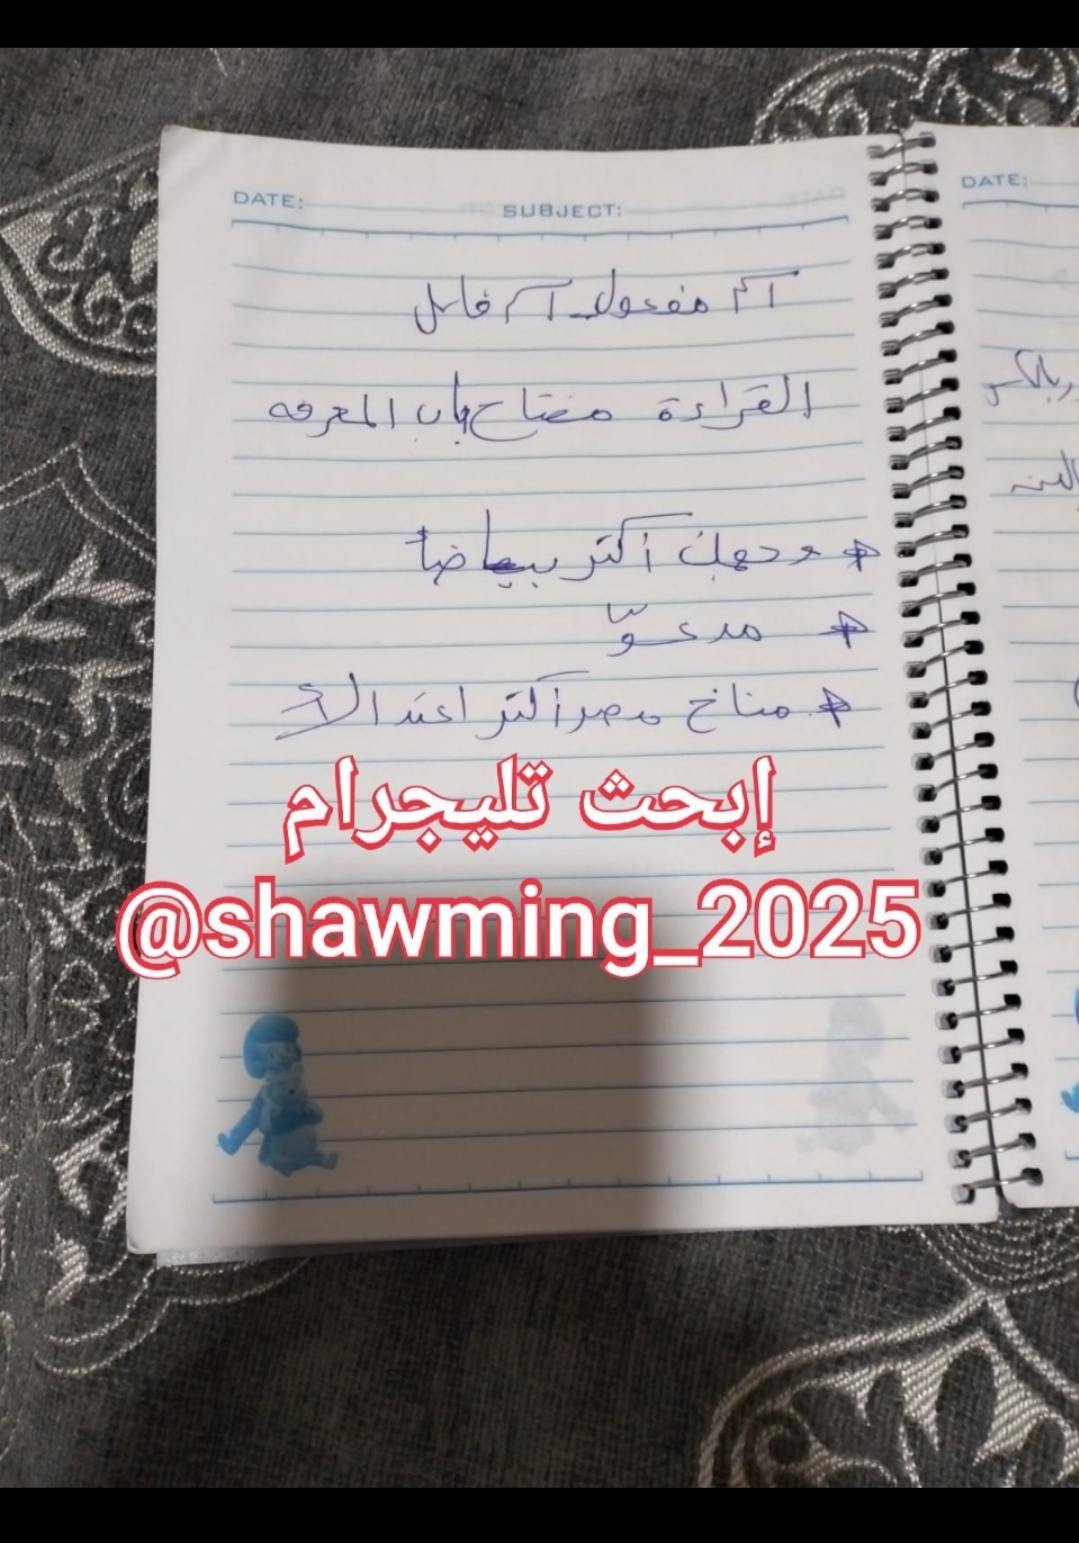 DATE: SUBJECT:
اسم مفعول اسم فاعل
القراءة مفتاح باب المعرفه
وجهك أكثر بياضاً
مدعوّ
مناخ مصر أكثر اعتدالاً
إبحث تليجرام
@shawming_2025
DATE: